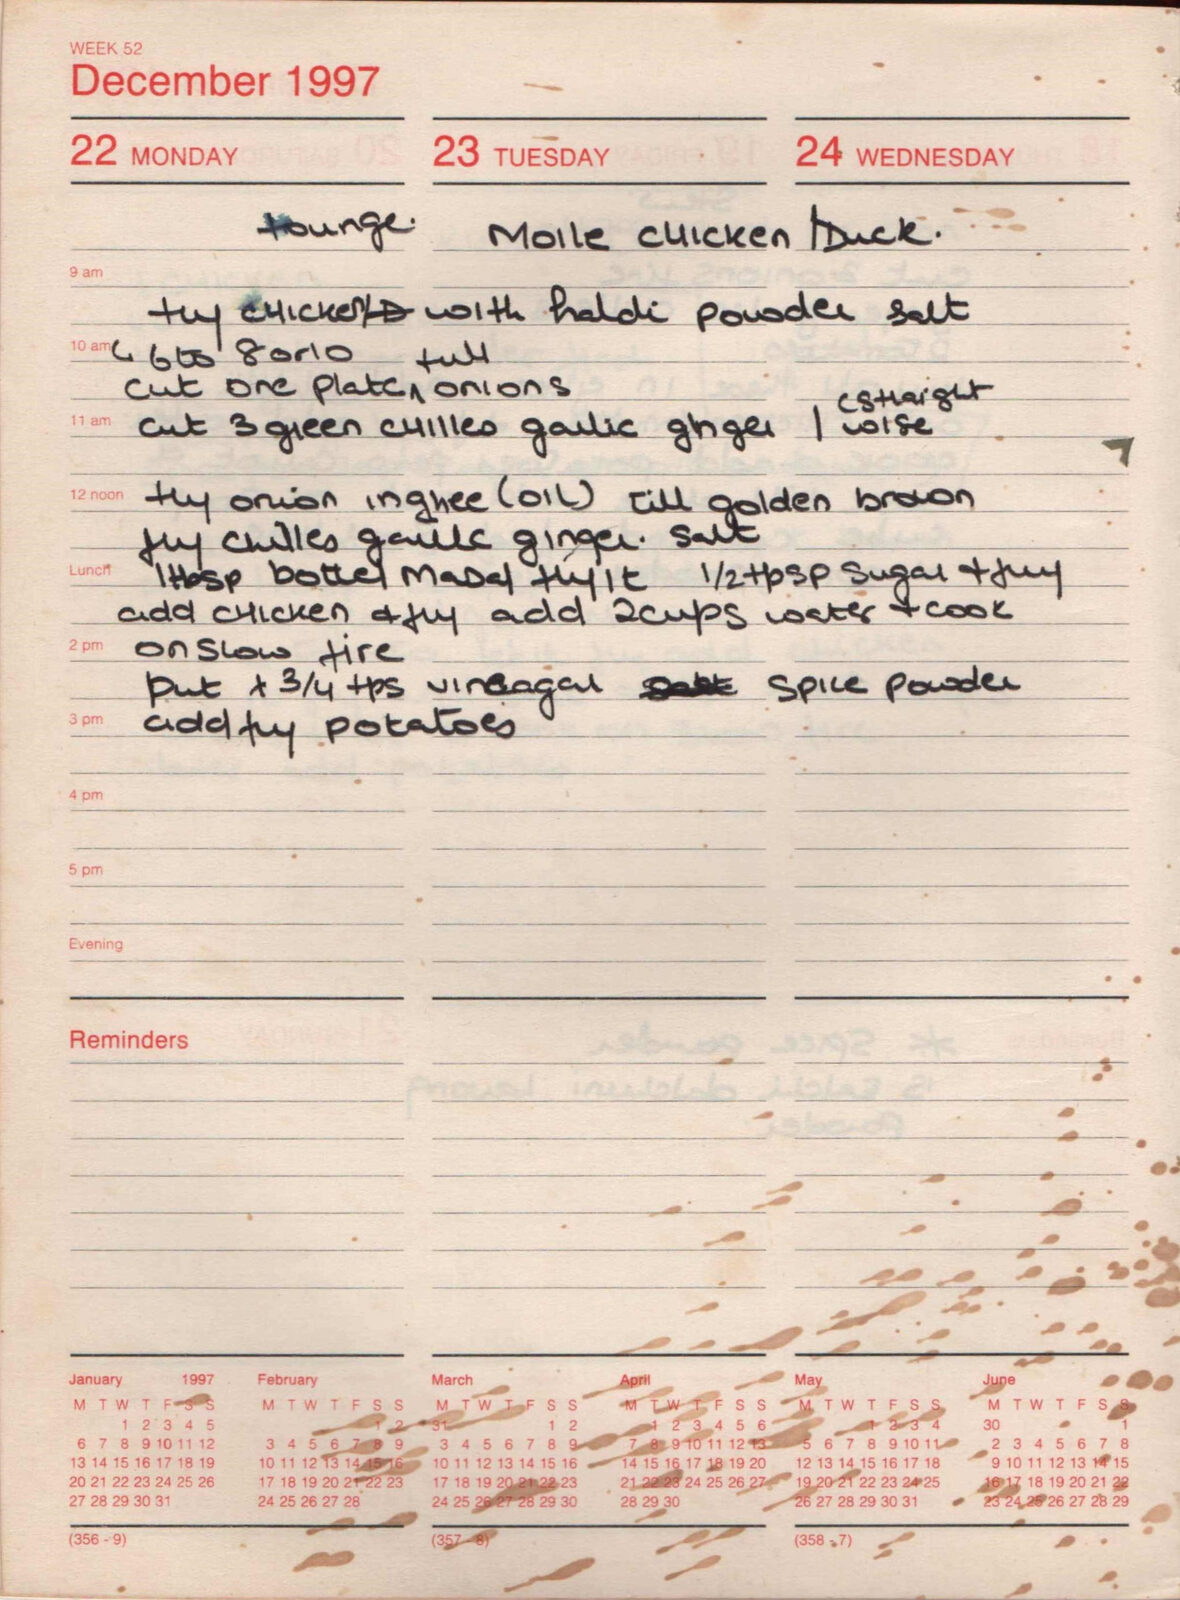 WEEK 52
December 1997
22 MONDAY 23 TUESDAY 24 WEDNESDAY
tounge. Moile chicken /Duck.
9 am
fry chicken/D with haldi powder salt
10 am 6 to 8 or 10 full
cut one plate onions
(straight
11 am cut 3 green chilles garlic ginger / wise
12 noon fry onion in ghee (OIL) till golden brown
fry chilles garlic ginger. salt
Lunch 1 tbsp bottel Masal fry it 1/2 tpsp sugar + fry
add chicken & fry add 2 cups water + cook
2 pm on slow fire
put + 3/4 tps vineagar spice powder
3 pm add fry potatoes
4 pm
5 pm
Evening
Reminders
January 1997 February March April May June
M T W T F S S M T W T F S S M T W T F S S M T W T F S S M T W T F S S M T W T F S S
1 2 3 4 5 1 2 31 1 2 1 2 3 4 5 6 1 2 3 4 30 1
6 7 8 9 10 11 12 3 4 5 6 7 8 9 3 4 5 6 7 8 9 7 8 9 10 11 12 13 5 6 7 8 9 10 11 2 3 4 5 6 7 8
13 14 15 16 17 18 19 10 11 12 13 14 15 16 10 11 12 13 14 15 16 14 15 16 17 18 19 20 12 13 14 15 16 17 18 9 10 11 12 13 14 15
20 21 22 23 24 25 26 17 18 19 20 21 22 23 17 18 19 20 21 22 23 21 22 23 24 25 26 27 19 20 21 22 23 24 25 16 17 18 19 20 21 22
27 28 29 30 31 24 25 26 27 28 24 25 26 27 28 29 30 28 29 30 26 27 28 29 30 31 23 24 25 26 27 28 29
(356 - 9) (357 - 8) (358 - 7)